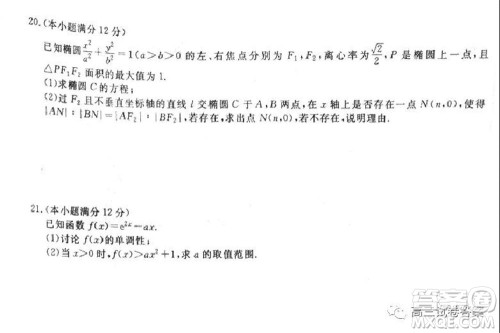 20.(本小题满分12分)
已知椭圆x²/a²+y²/b²=1(a>b>0)的左、右焦点分别为F₁,F₂,离心率为√2/2,P是椭圆上一点,且
△PF₁F₂面积的最大值为1.
(1)求椭圆C的方程;
(2)过F₂且不垂直坐标轴的直线l交椭圆C于A,B两点,在x轴上是否存在一点N(n,0),使得
|AN|:|BN|=|AF₂|:|BF₂|,若存在,求出点N(n,0),若不存在,说明理由.
21.(本小题满分12分)
已知函数f(x)=e²ˣ-ax.
(1)讨论f(x)的单调性;
(2)当x>0时,f(x)>ax²+1,求a的取值范围.
高三试卷答案
MXQE.COM